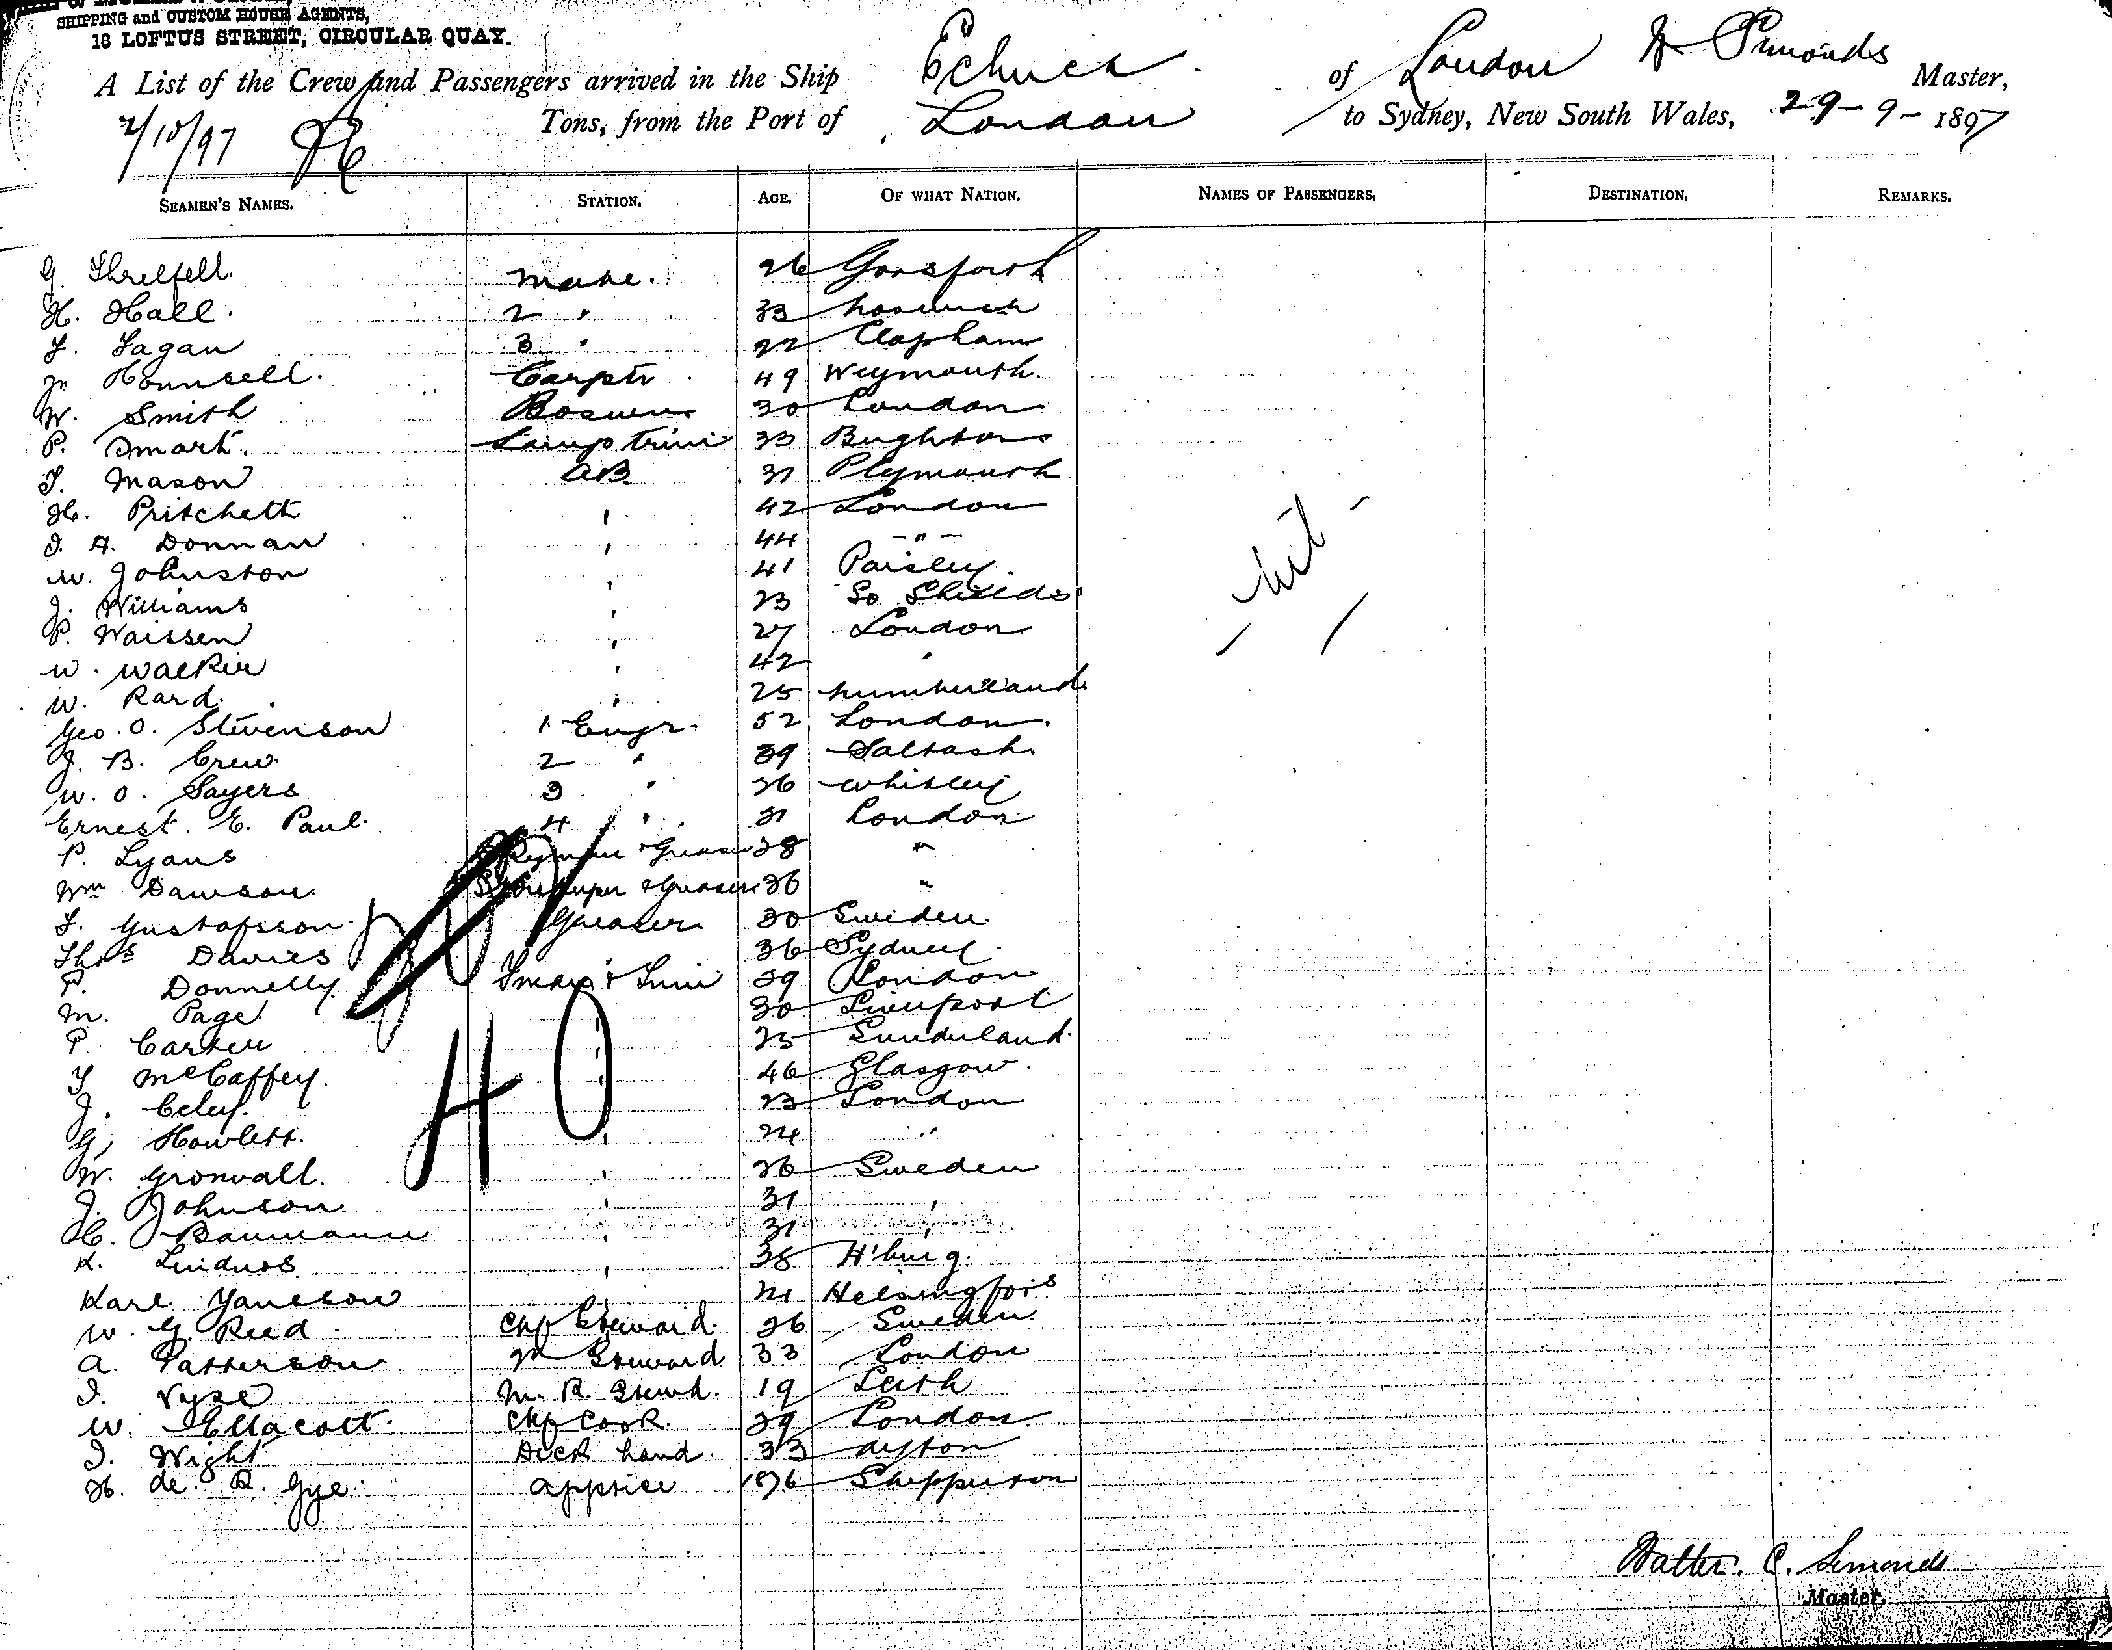 SHIPPING and CUSTOM HOUSE AGENTS,
18 LOFTUS STREET, CIRCULAR QUAY.
A List of the Crew and Passengers arrived in the Ship Echuca of London W Simonds Master,
Tons, from the Port of London to Sydney, New South Wales, 29-9-1897
2/10/97
SEAMEN'S NAMES. STATION. AGE. OF WHAT NATION. NAMES OF PASSENGERS. DESTINATION. REMARKS.
G. Threlfell. Mate. 26 Gosforth
H. Hall. 2 " 33
F. Fagan 3 " 22 Clapham
Hounsell. Carptr 49 Weymouth.
W. Smith Bosun 30 London
P. Smart. Lamp trim 33 Brighton
T. Mason AB 31 Plymouth
H. Pritchett " 42 London
J. A. Donnan " 44 - " -
W. Johnston " 41 Paisley.
J. Williams " 23 So Shields
P. Waissen " 27 London
W. Walker " 42 "
W. Rard " 25
Geo. O. Stevenson 1 Engr. 52 London.
J. B. Crew 2 " 39 Saltash.
W. O. Sayers 3 " 26 Whitley
Ernest. E. Paul 4 " 31 London
P. Lyons & Greaser 38 "
Wm Dawson Storekeeper & Greaser 36 "
F. Gustafsson Greaser 30 Sweden.
Thos Davies 36 Sydney
P. Donnelly Fman & Trim 39 London
M. Page " 30 Liverpool
P. Carter " 25 Sunderland.
McCaffey. " 46 Glasgow.
J. Celey. 23 London
G. Howlett. " 24 "
W. Gronvall. " 26 Sweden
J. Johnson " 31 "
C. Baumann " 31 "
K. " 38 H'burg.
Karl Jansson " 21 Helsingfors
W. G. Reed Chf Steward. 26 Sweden
A. Patterson 2n Steward 33 London
J. Vyse M. R. Stewd. 19 Leith
W. Ellacott. Chf Cook. 39 London
J. Wight Deck hand. 33 Ayton
H. de R. Gye. apptice 1876 Shepperton
- nil -
40
Walter. C. Simonds
Master.